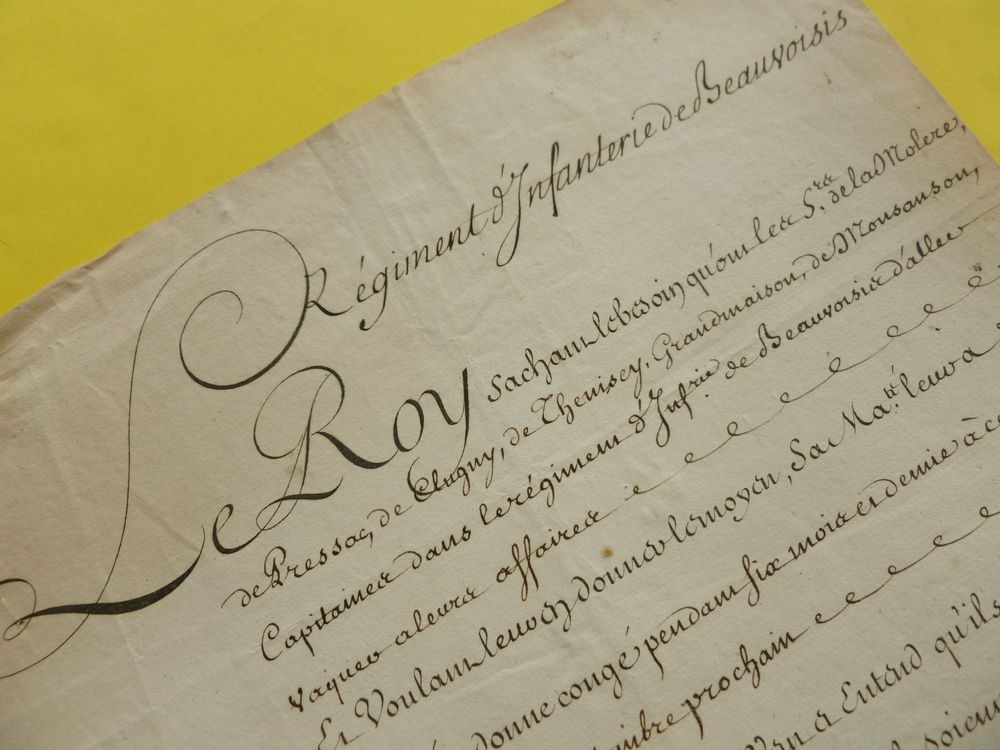 Régiment d'Infanterie de Beauvoisis
Le Roy sachant le besoin qu'ont les Srs. de la Molere,
de Pressac, de Clugny, de Thenisey, Grandmaison, de Monsanson,
Capitaines dans le régiment d'Infrie de Beauvoisis d'aller
vaquer a leurs affaires
Et Voulant leur en donner le moyen, Sa Maté. leur a
donne congé pendant six mois et demie à
prochain
Entend qu'ils
soient